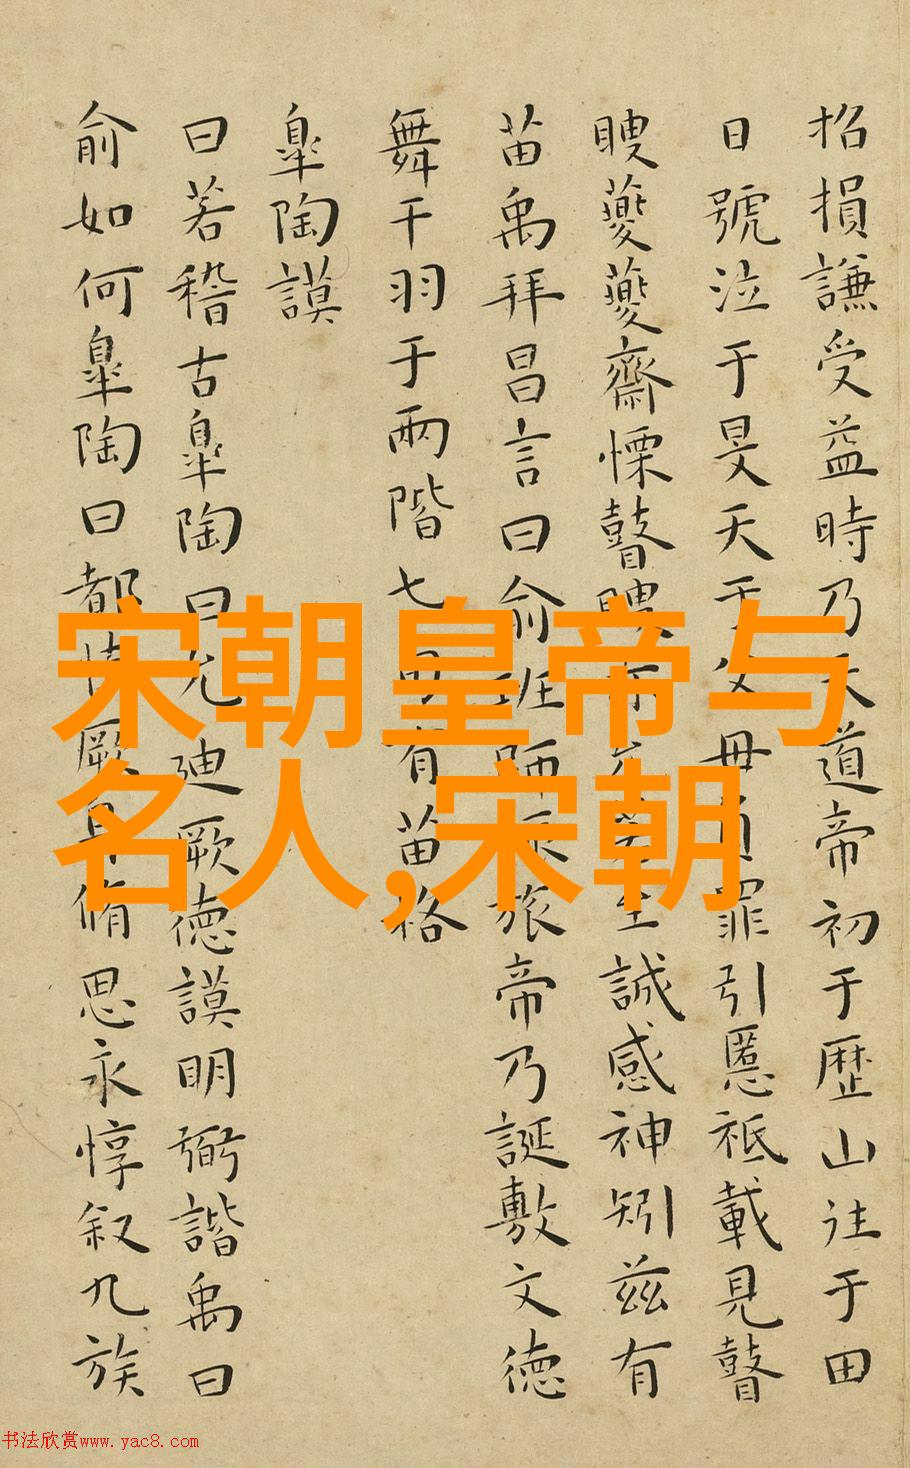 招損謙受益時乃天道帝初于歷山往于田
日號泣于旻天于父母負罪引慝祗載見瞽
瞍夔夔齋慄瞽瞍亦允若至誠感神矧茲有
苗禹拜昌言曰俞班師振旅帝乃誕敷文德
舞干羽于兩階七旬有苗格
皋陶謨
曰若稽古皋陶曰允迪厥德謨明弼諧禹曰
俞如何皋陶曰都慎厥身脩思永惇叙九族
宋朝皇帝与
名人,宋朝
书法欣赏www.yac8.com